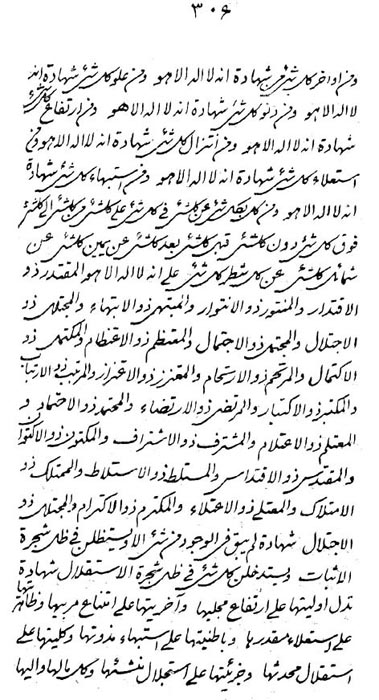 ٣٠۶
ومن اواخر كل شئ من شهادة انه لا اله الا هو ومن علو كل شئ شهادة انه
لا اله الا هو ومن دنو كل شئ شهادة انه لا اله الا هو ومن ارتفاع كل شئ
شهادة انه لا اله الا هو ومن امتزال كل شئ شهادة انه لا اله الا هو ومن
استعلاء كل شئ شهادة انه لا اله الا هو ومن استبهاء كل شئ شهادة
انه لا اله الا هو ومن كل كلشئ عن كلشئ فى كل شئ على كلشئ من كلشئ الى كلشئ
فوق كل شئ دون كلشئ قبل كلشئ بعد كلشئ عن يمين كلشئ عن
شمائل كلشئ عن كل شطر كل شئ على انه لا اله الا هو المقتدر ذو
الاقتدار والمنتور ذو الانتوار والمبتهى ذو الابتهاء والمجتلل ذو
الاجتلال والمجتمل ذو الاجتمال والمعتظم ذو الاعتظام والمكتمل ذو
الاكتمال والمرتحم ذو الارتحام والمعتزز ذو الاعتزاز والمرتبب ذو الارتباب
والمكتبر ذو الاكتبار والمرتضى ذو الارتضاء والمحتمد ذو الاحتماد و
المعتلم ذو الاعتلام والمشترف ذو الاشتراف والمكتون ذو الاكتوان
والمقتدس ذو الاقتداس والمستلط ذو الاستلاط والممتلك ذو
الامتلاك والمعتلى ذو الاعتلاء والمكترم ذو الاكترام والمجتلل ذو
الاجتلال شهادة لم يبق فى الوجود من شئ الا ويستظلن فى ظل شجرة
الاثبات ويستدخلن كل شئ فى ظل شجرة الاستقلال شهادة
تدل اوليتها على ارتفاع مجليها وآخريتها على امتناع مربيها وظاهريتها
على استعلاء مقدرها وباطنيتها على استبهاء مذوتها وكليتها على
استقلال محدثها وجزئيتها على استجلال منشئها وكل بالها واليها